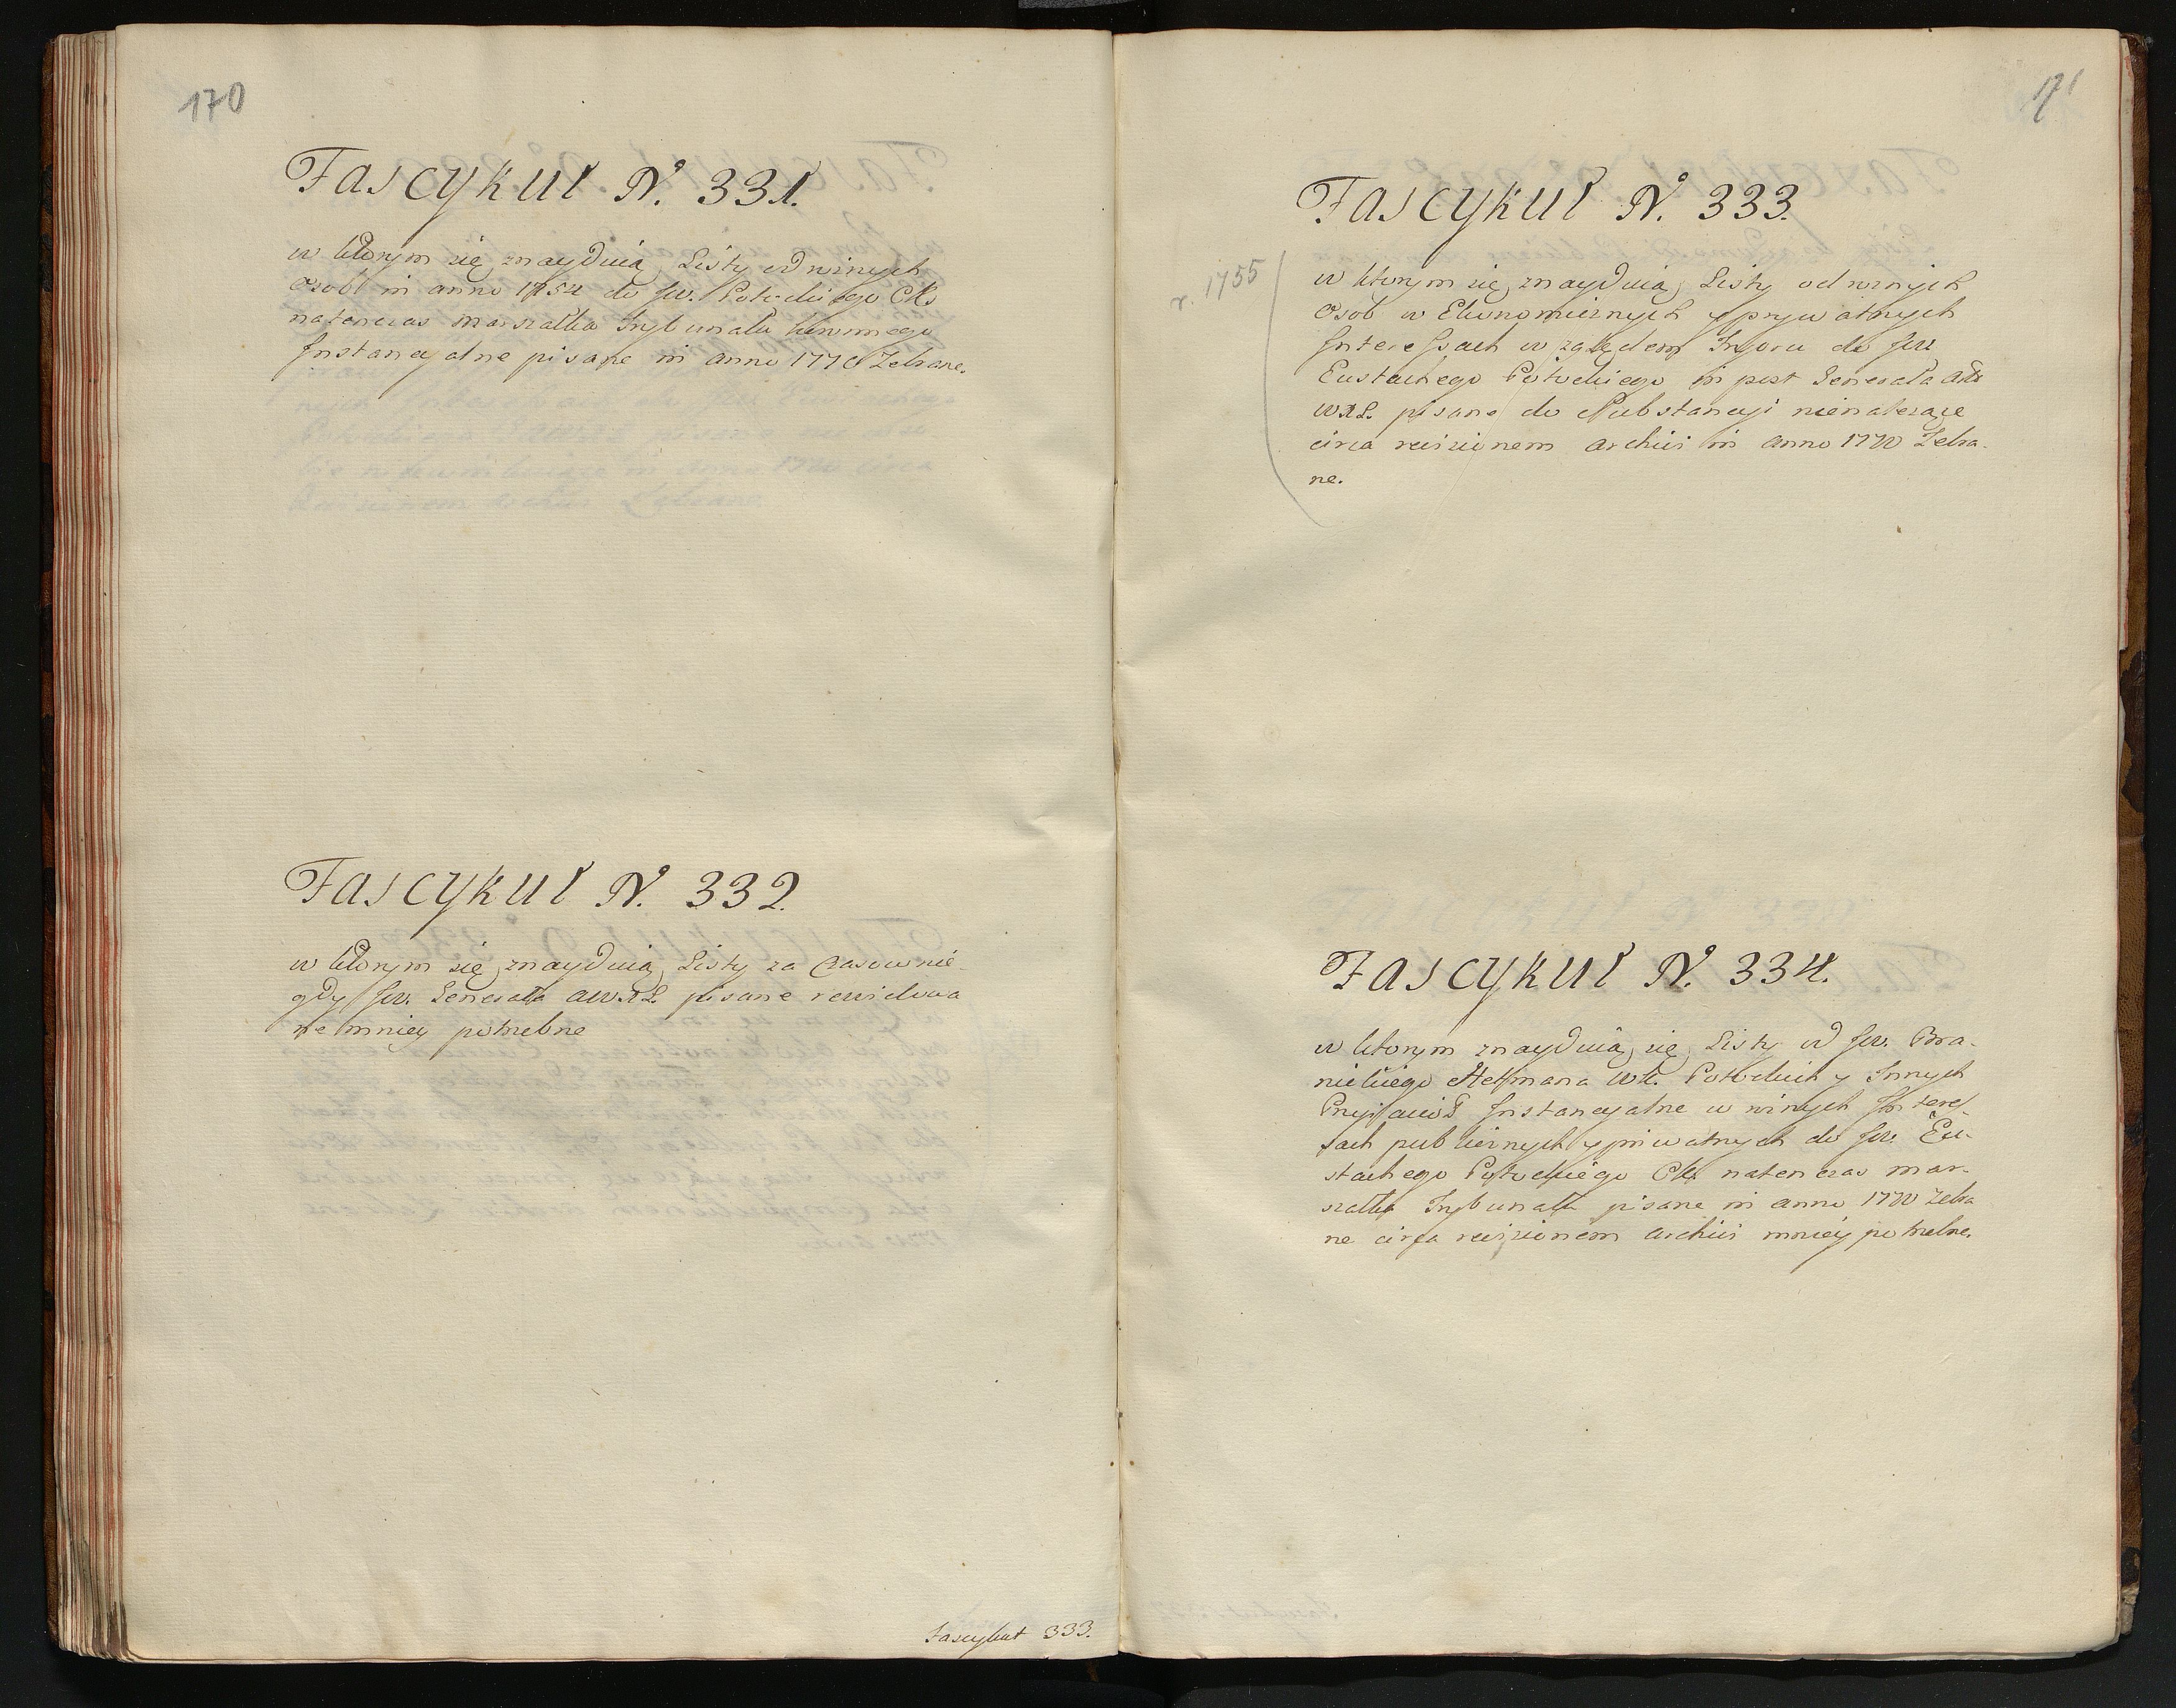 170
Fascykuł No. 331.
w ktorym się znayduią Listy od rożnych
Osob in anno 1754 do Jw. Potockiego CKo
natenczas Marszałka Trybunału koronnego
Jnstancyalne pisane in anno 1770 Zebrane.
Fascykuł No. 332.
w ktorym się znayduią Listy za Czasow nie-
gdy Jw. Generała AWXL. pisane rewidowa
ne mniey potrzebne
Fascykuł 333.
171
Fascykuł No. 333.
r. 1755
w ktorym się znayduią Listy od rożnych
Osob w Ekonomicznych y prywatnych
Jnteressach w zględem Tworu do Jw.
Eustachego Potockiego in post Generała Art
WXL. pisane do Substancyi nienależące
circa revisionem Archivi in anno 1770 Zebra-
ne.
Fascykuł No. 334.
w ktorym znayduią się Listy od Jw. Bra-
nickiego Hetmana WK. Potockich y Jnnych
Przyiacioł Jnstancyalne w rożnych Jnteres-
sach publicznych y prywatnych do Jw. Eu-
stachego Potockiego CK. natenczas Mar-
szałka Trybunału pisane in anno 1770 Zebra
ne circa revisionem Archivi mniey potrzebne.